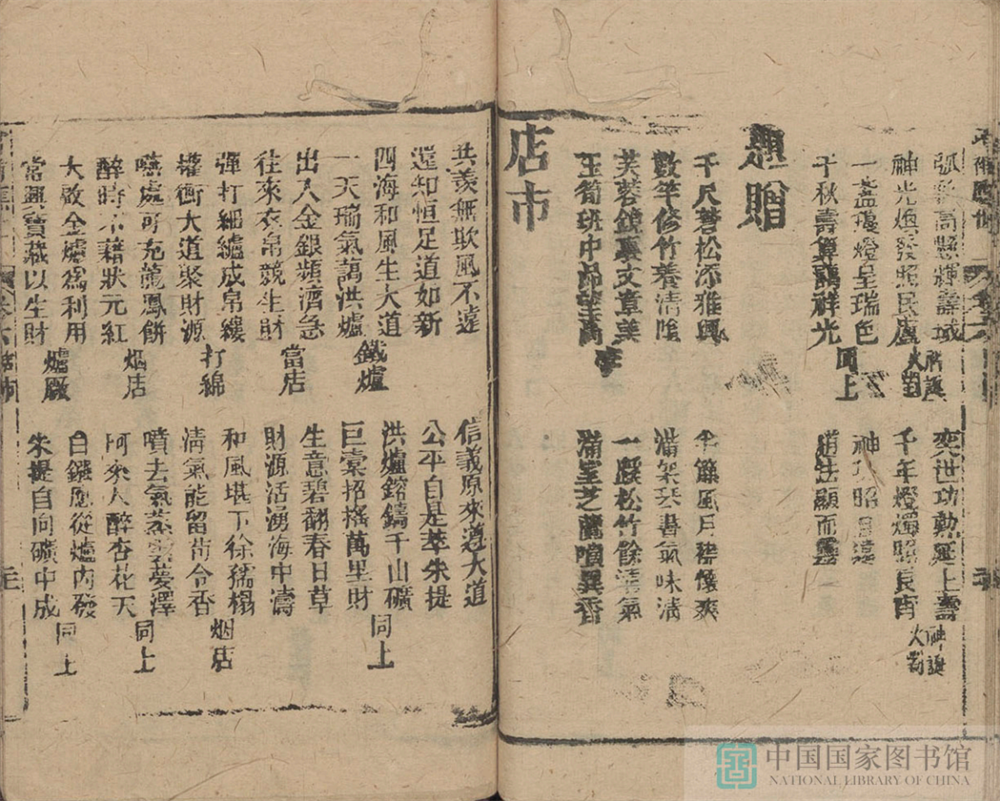 高懸輝壽域
奕世功勳延上壽
神誕
神光煥發照民廬
火留
千年燈燭照良宵
神誕
一盞瓊燈呈瑞色
神 昭
千秋壽算藹祥光
同上
道法顯而靈
題贈
千尺蒼松添雅興
半簾風月襟懷爽
數竿修竹養清陰
滿架琴書氣味清
芙蓉鏡裏文章美
一庭松竹餘清氣
玉筍班中品望高
滿室芝蘭噴異香
店市
共羨無欺風不遠
信義原來遵大道
還知恒足道如新
公平自是萃朱提
四海和風生大道
鐵爐
洪爐鎔鑄千山礦
同上
一天瑞氣藹洪爐
巨橐招搖萬里財
出入金銀頻濟急
當店
生意碧翻春日草
往來衣帛競生財
財源活湧海中濤
彈打細纑成帛縷
打綿
和風堪下徐孺榻
烟店
權衡大道聚財源
清氣能留荀令香
嚥處可充龍鳳餅
噴去氣蒸雲夢澤
同上
醉時不藉狀元紅
烟店
呵來人醉杏花天
大啟金爐爲利用
白鏹應從爐內發
同上
常興寶藏以生財
爐廠
朱提自向礦中成
中国国家图书馆
NATIONAL LIBRARY OF CHINA